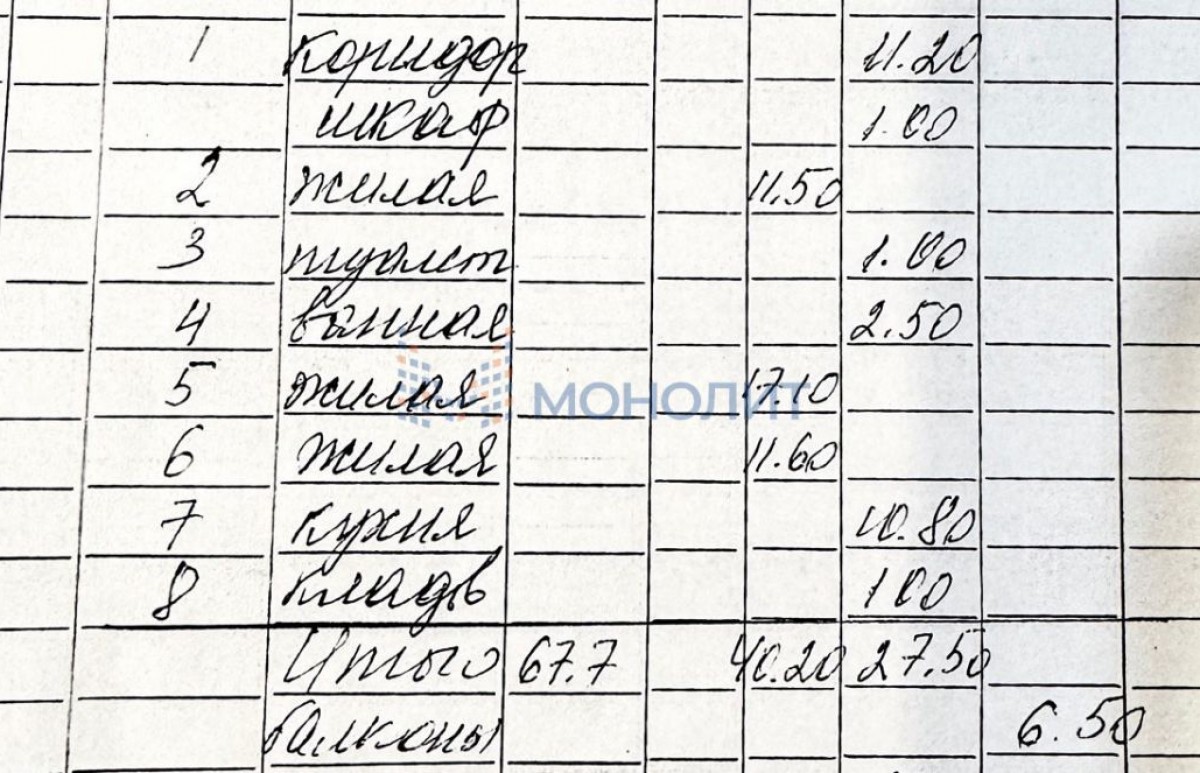 1 коридор 11.20
шкаф 1.00
2 жилая 11.50
3 туалет 1.00
4 ванная 2.50
5 жилая 17.10
МОНОЛИТ
6 жилая 11.60
7 кухня 10.80
8 кладов 1 00
Итого 67.7 40.20 27.50
балконы 6.50